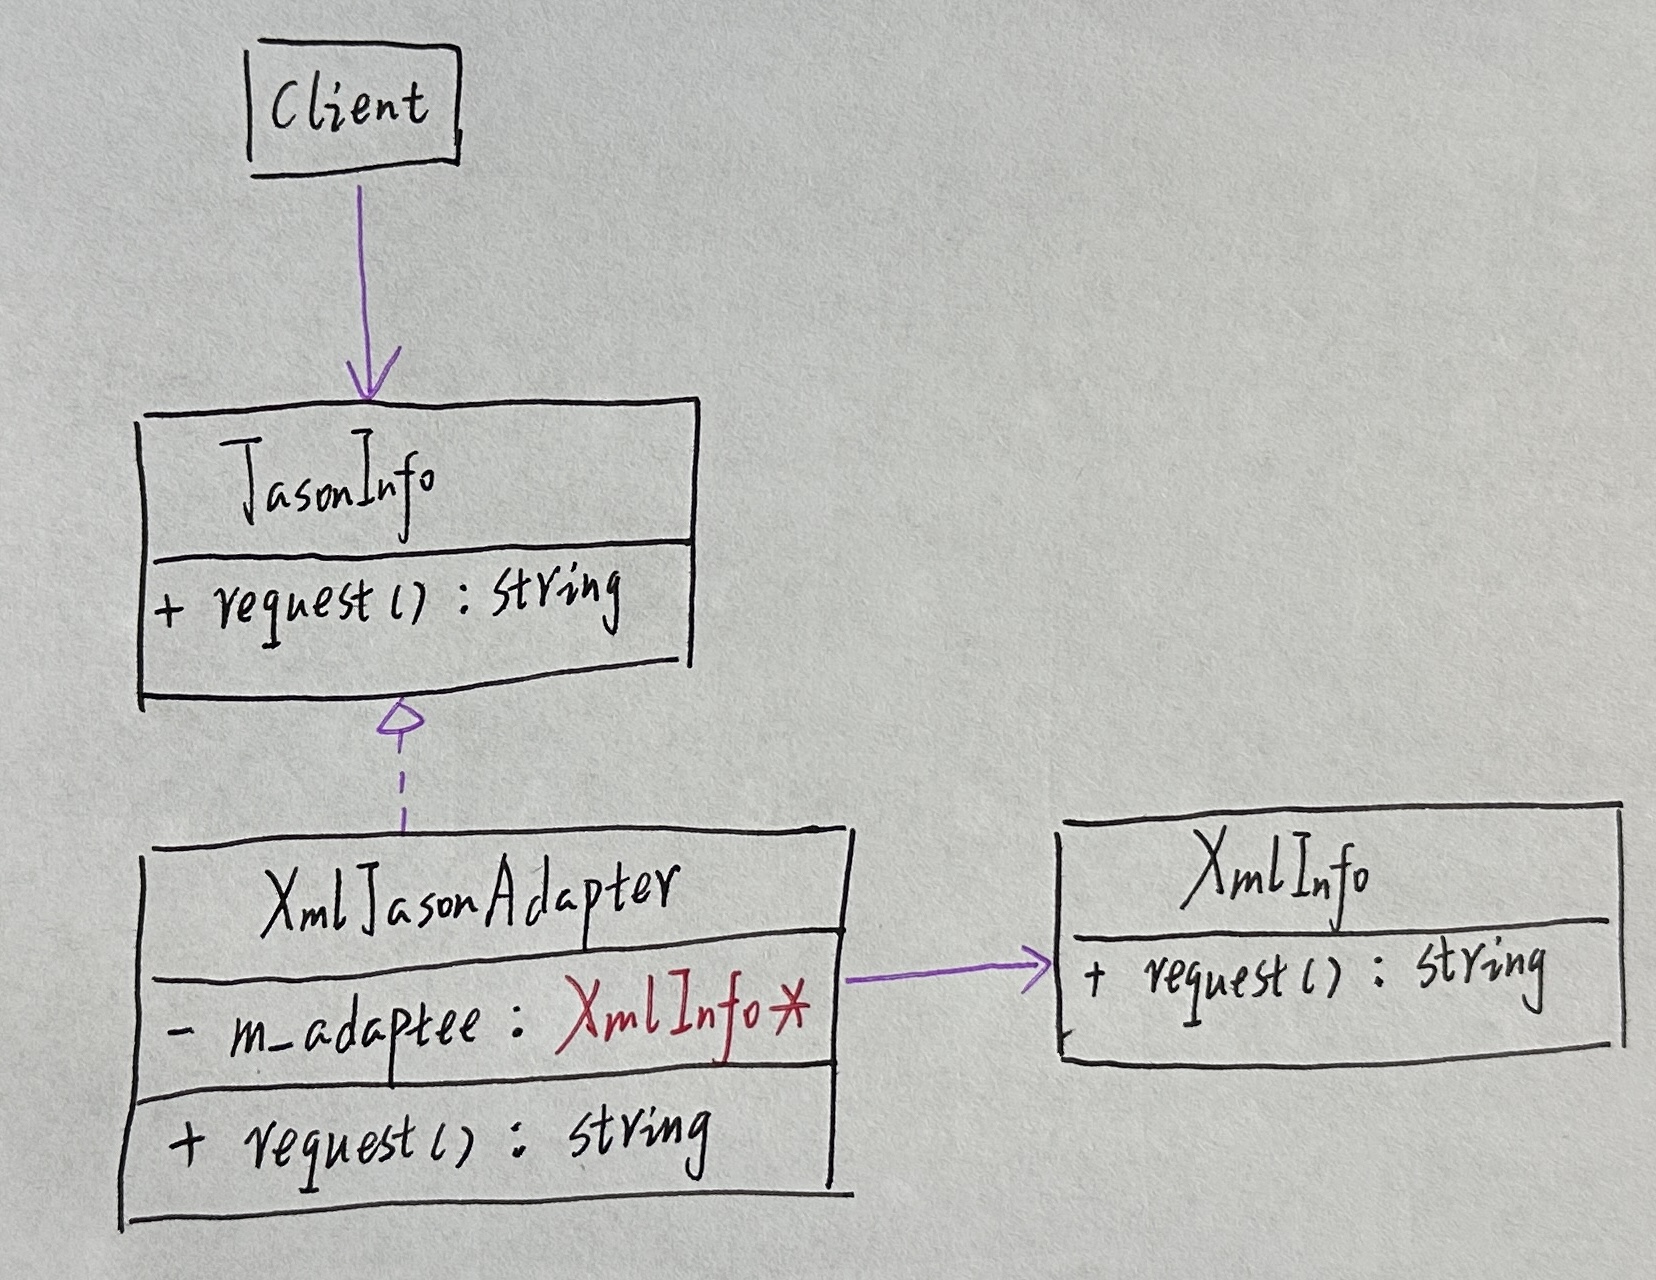 Client
JasonInfo
+ request() : string
XmlJasonAdapter
- m_adaptee : XmlInfo*
+ request() : string
XmlInfo
+ request() : string